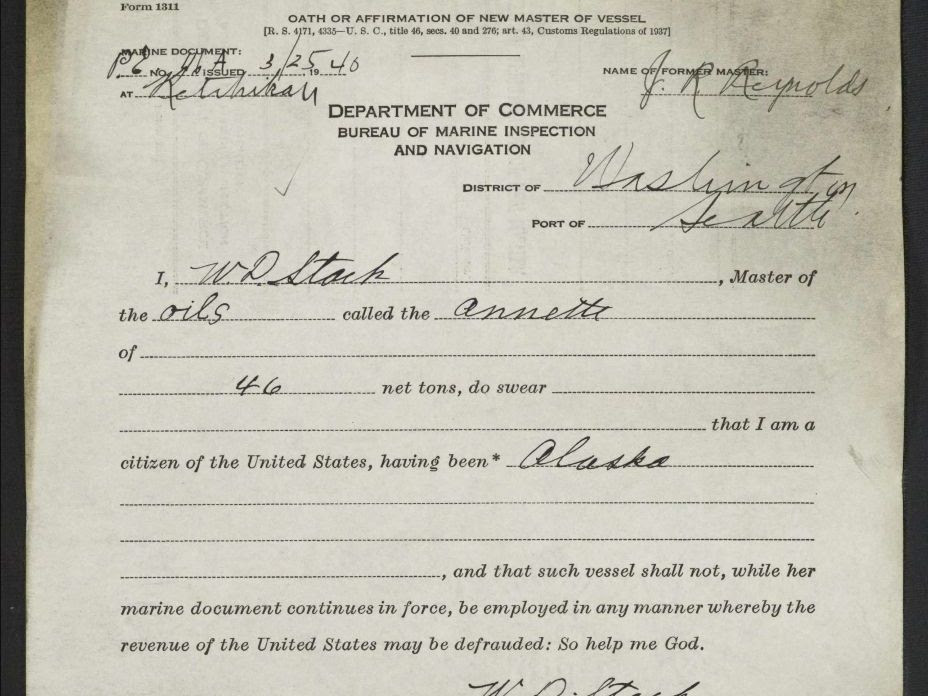 Form 1311
OATH OR AFFIRMATION OF NEW MASTER OF VESSEL
[R. S. 4171, 4335—U. S. C., title 46, secs. 40 and 276; art. 43, Customs Regulations of 1937]
MARINE DOCUMENT:
P.E. No. ISSUED 3/25, 1940
NAME OF FORMER MASTER:
J. R Reynolds
AT Ketchikan
DEPARTMENT OF COMMERCE
BUREAU OF MARINE INSPECTION
AND NAVIGATION
DISTRICT OF Washington
PORT OF Seattle
I, W. D. Stack, Master of
the oils called the Annette
of
46 net tons, do swear
that I am a
citizen of the United States, having been* Alaska
, and that such vessel shall not, while her
marine document continues in force, be employed in any manner whereby the
revenue of the United States may be defrauded: So help me God.
W. D. Stack